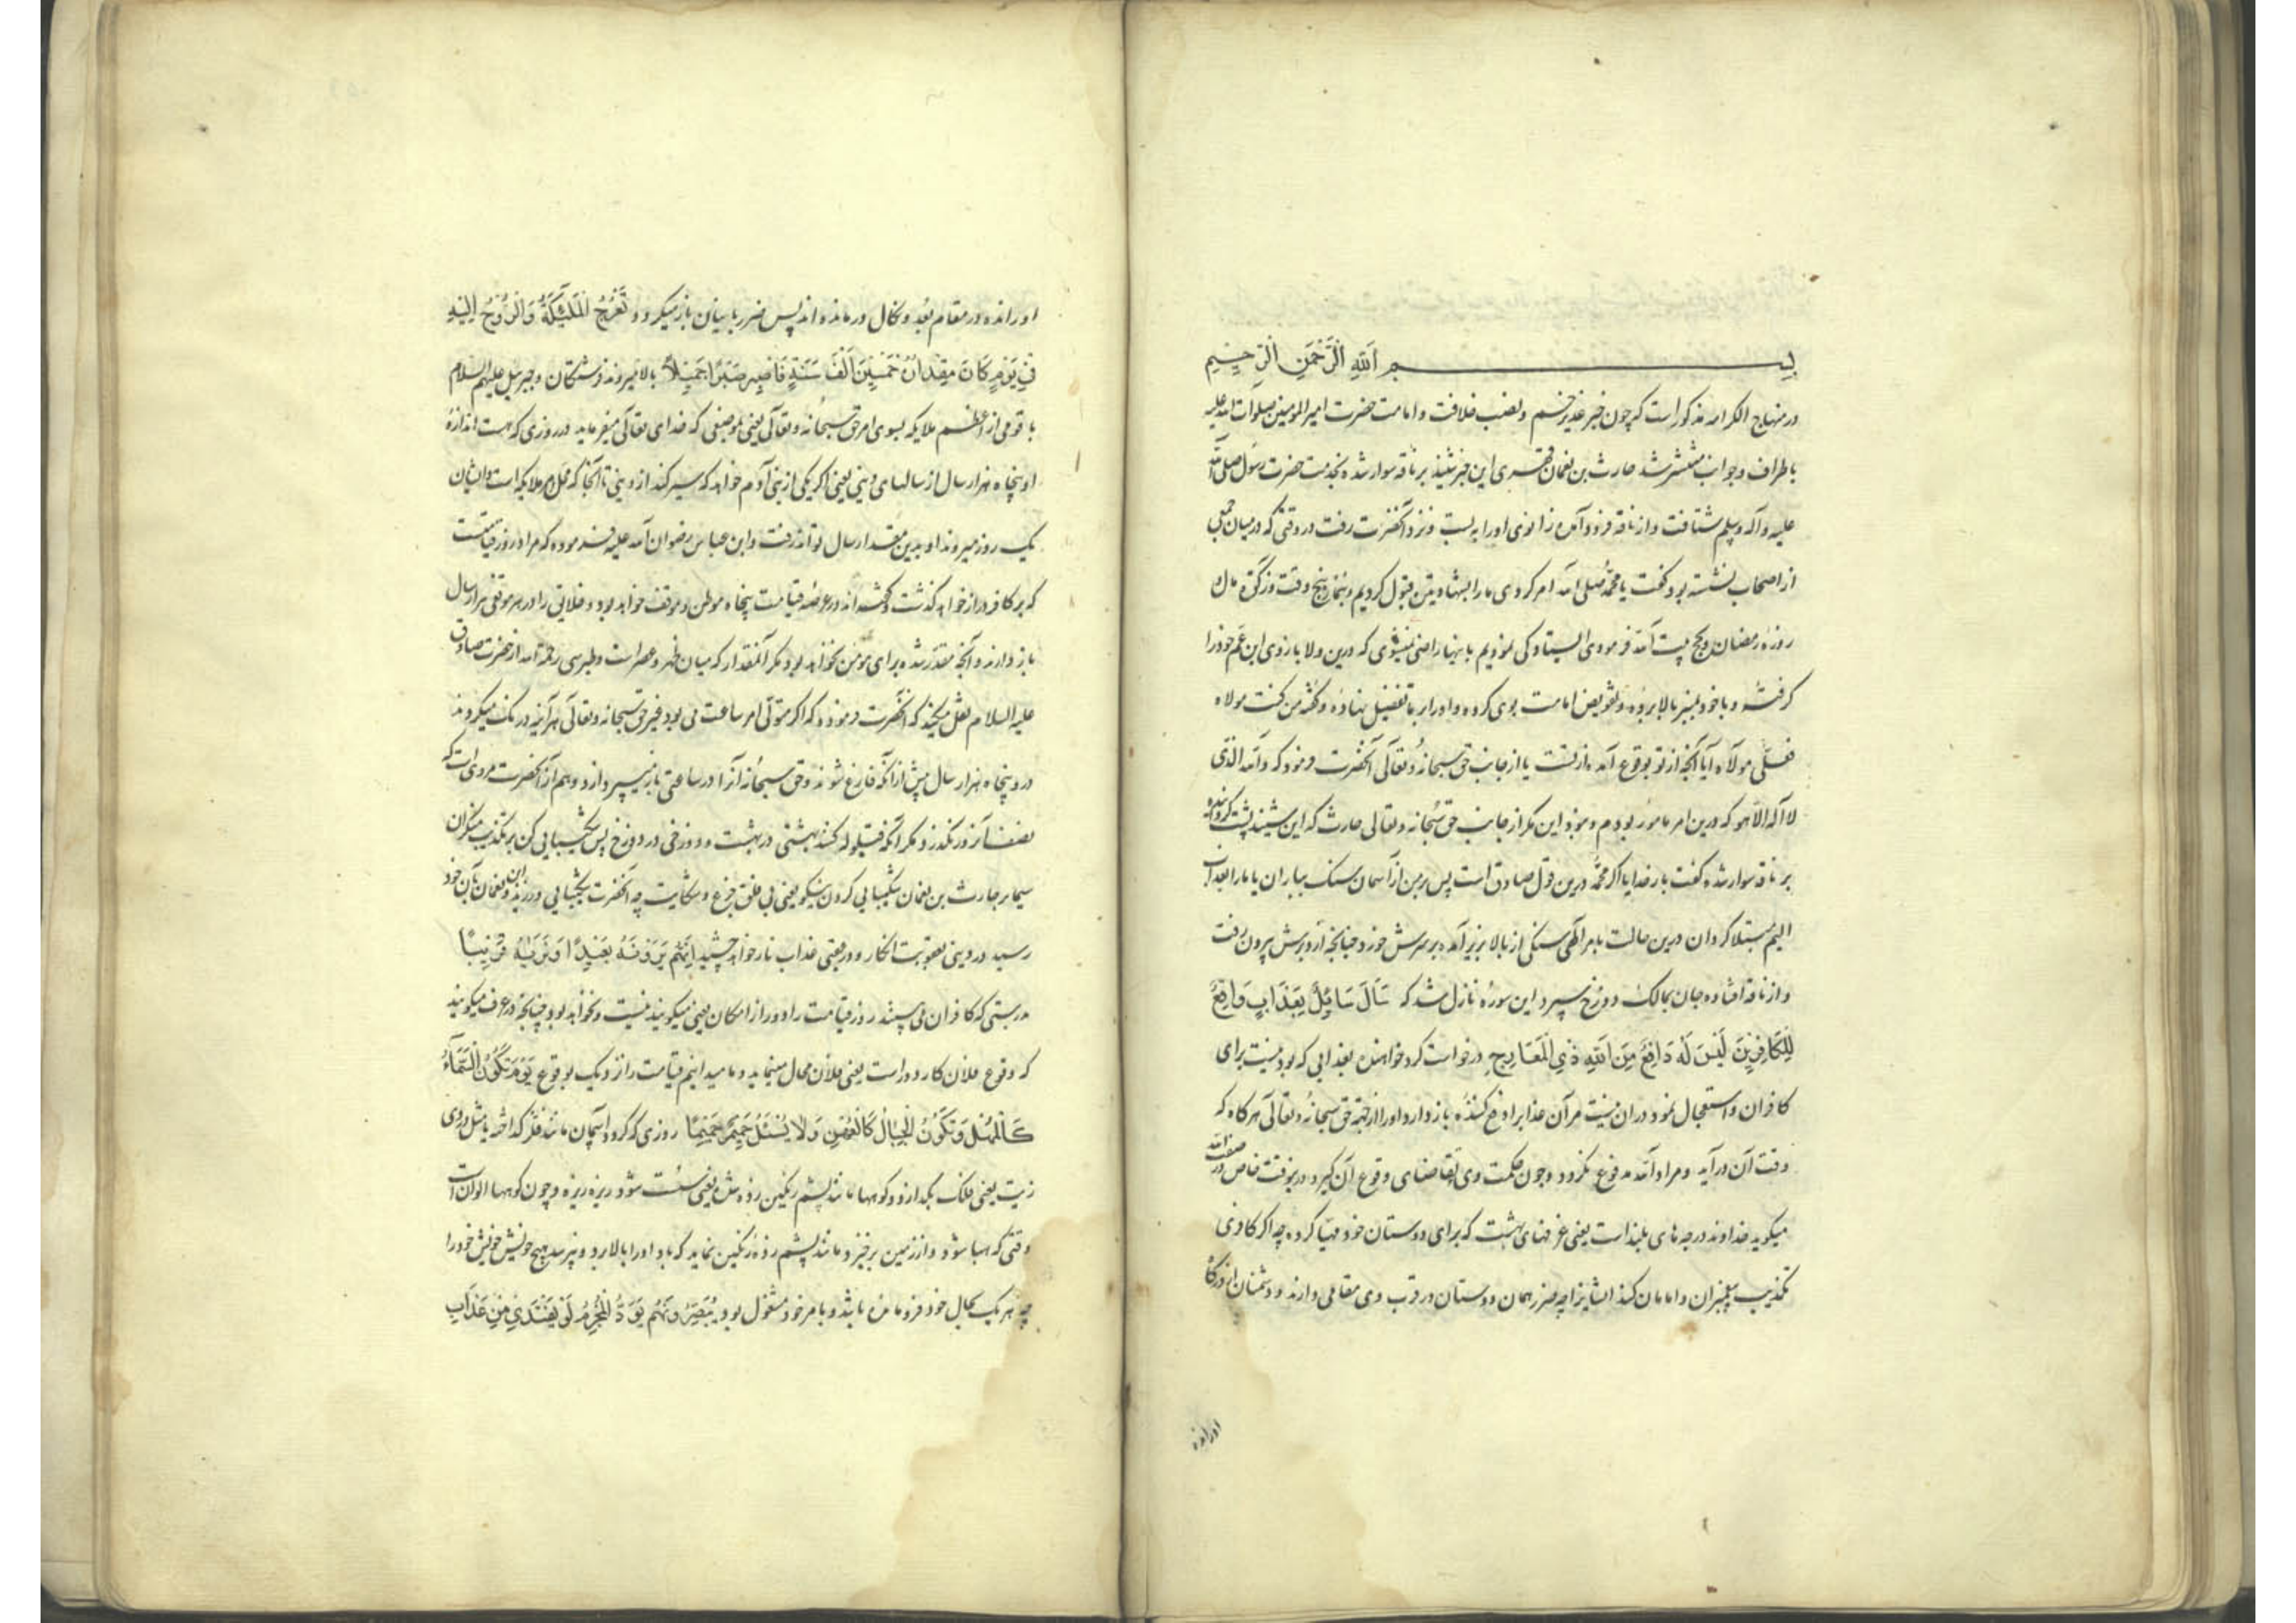 بسم الله الرحمن الرحیم
در منهاج الکرامه مذکور است که چون خبر غدیر خم و نصب خلافت و امامت حضرت امیر المومنین صلوات الله علیه
باطراف و جوانب منتشر شد حارث بن نعمان فهری این خبر شنید بر ناقه سوار شده بخدمت حضرت رسول صلی الله
علیه و آله و سلم شتافت و از ناقه فرود آمده زانوی او را به بست و نزد آنحضرت رفت در وقتی که در میان جمعی
از اصحاب نشسته بود گفت یا محمد صلی الله امر کردی ما را بشهادتین قبول کردیم و بنماز پنج وقت و زکوة مال
روزه رمضان و حج بیت الله فرمودی ایستادگی نمودیم باینها راضی نمیشوی که درین ولا بازوی ابن عم خود را
گرفته و با خود بمنبر بالا برده و تفویض امامت بوی کرده و او را بر ما تفضیل نهاده و گفته من کنت مولاه
فعلی مولاه آیا آنچه از تو بوقوع آمده از تست یا از جانب حق سبحانه و تعالی آنحضرت فرمود که والله الذی
لا اله الا هو که درین امر مامور بودم و نبود این مگر از جانب حق سبحانه و تعالی حارث که این شنید پشت کرده
بر ناقه سوار شده گفت بار خدایا اگر محمد درین قول صادق است پس بر من از آسمان سنگ بباران یا ما را بعذاب
الیم مبتلا گردان درین حالت بامر الهی سنگی از بالا بزیر آمد بر سرش خورد چنانچه از دبرش بیرون رفت
و از ناقه افتاده جان بمالک دوزخ سپرد این سوره نازل شد که سَأَلَ سَائِلٌ بِعَذَابٍ وَاقِعٍ
لِلْكَافِرِينَ لَيْسَ لَهُ دَافِعٌ مِنَ اللَّهِ ذِي الْمَعَارِجِ درخواست کرد خواهنده بعذابی که بودنیست برای
کافران و استعجال نمود در آن نیست مر آن عذاب را دفع کننده باز دارد او را از جهة حق سبحانه و تعالی هرگاه که
وقت آن درآید و مراد الله مدفوع نگردد و چون حکمت وی تقاضای وقوع آن کبرد در بوقت خاص در صفت الله
میگوید خداوند درجه های بلند است یعنی غرفهای بهشت که برای دوستان خود مهیا کرده چه اگر کافری
تکذیب پیغمبران و امامان کند ایشانرا چه ضرر همان دوستان در قرب وی مقامی دارند و دشمنان از درگاه
اورانده
او رانده در مقام بُعد و نکال در مانده اند پس ضرر با بیان باز میگردد تَعْرُجُ الْمَلَئِكَةُ وَالرُّوحُ إِلَيْهِ
فِي يَوْمٍ كَانَ مِقْدَارُهُ خَمْسِينَ أَلْفَ سَنَةٍ فَاصْبِرْ صَبْرًا جَمِيلًا بالا میروند فرشتگان و جبرئیل علیهم السلام
با قومی از اعظم ملایکه بسوی امر حق سبحانه و تعالی یعنی بموضعی که خدای تعالی میفرماید در روزی که هست اندازهٔ
او پنجاه هزار سال از سالهای دنیی یعنی اگر یکی از بنی آدم خواهد که سیر کند از دنیی تا آنجا که محل امر ملایکه است و ایشان
یک روز میروند او بدین مقدار سال تواند رفت و ابن عباس رضوان الله علیه فرموده که مراد روز قیامتست
که بر کافر دراز خواهد گذشت و گفته اند در عرصه قیامت پنجاه موطن و موقف خواهد بود و خلایق را در هر موقفی هزار سال
باز دارند و آنچه مقدر شده برای مومن نخواهد بود مگر آنمقدار که میان ظهر و عصر است و طبرسی رحمه الله از حضرت صادق
علیه السلام نقل میکند که آنحضرت فرمود که اگر متولی امر ساعت می بود غیر حق سبحانه و تعالی هرآینه درنگ میکردند
در و پنجاه هزار سال پیش از آنکه فارغ شوند و حق سبحانه آنرا در ساعتی باز میپردازد و هم از آنحضرت مرویست که
نصف آنروز نگذرد مگر آنکه قیلوله کنند بهشتی در بهشت و دوزخی در دوزخ پس شکیبایی کن بر تکذیب منکران
سیما بر حارث بن نعمان شکیبایی کردن نیکو یعنی بی قلق جزع و شکایت چه آنحضرت شکیبایی ورزید و ابن نعمان بآن خود
رسید در دنیی بعقوبت انکار و در عقبی عذاب نار خواهد چشید إِنَّهُمْ يَرَوْنَهُ بَعِيدًا وَنَرَاهُ قَرِيبًا
بدرستی که کافران می بینند روز قیامت را دور از امکان یعنی میگویند نیست و نخواهد بود چنانچه در عرف میگویند
که وقوع فلان کار دور است یعنی فلان محال مینماید و ما میدانیم قیامت را نزدیک بوقوع يَوْمَ تَكُونُ السَّمَاءُ
كَالْمُهْلِ وَتَكُونُ الْجِبَالُ كَالْعِهْنِ وَلَا يُسْئَلُ حَمِيمٌ حَمِيمًا روزی که گردد آسمان مانند فلز گداخته یا مثل دردی
زیت یعنی فلک بگدازد و کوهها مانند پشم رنگین زده شده یعنی سست شود ریزه ریزه و چون کوهها الوان است
وقتی که هبا شود و از زمین برخیزد مانند پشم زده رنگین نماید که باد او را بالا برد و نپرسد هیچ خویش خویش خود را
چه هر یک بحال خود فرو مانده باشد و بامر خود مشغول بود يُبَصَّرُونَهُمْ يَوَدُّ الْمُجْرِمُ لَوْ يَفْتَدِي مِنْ عَذَابِ